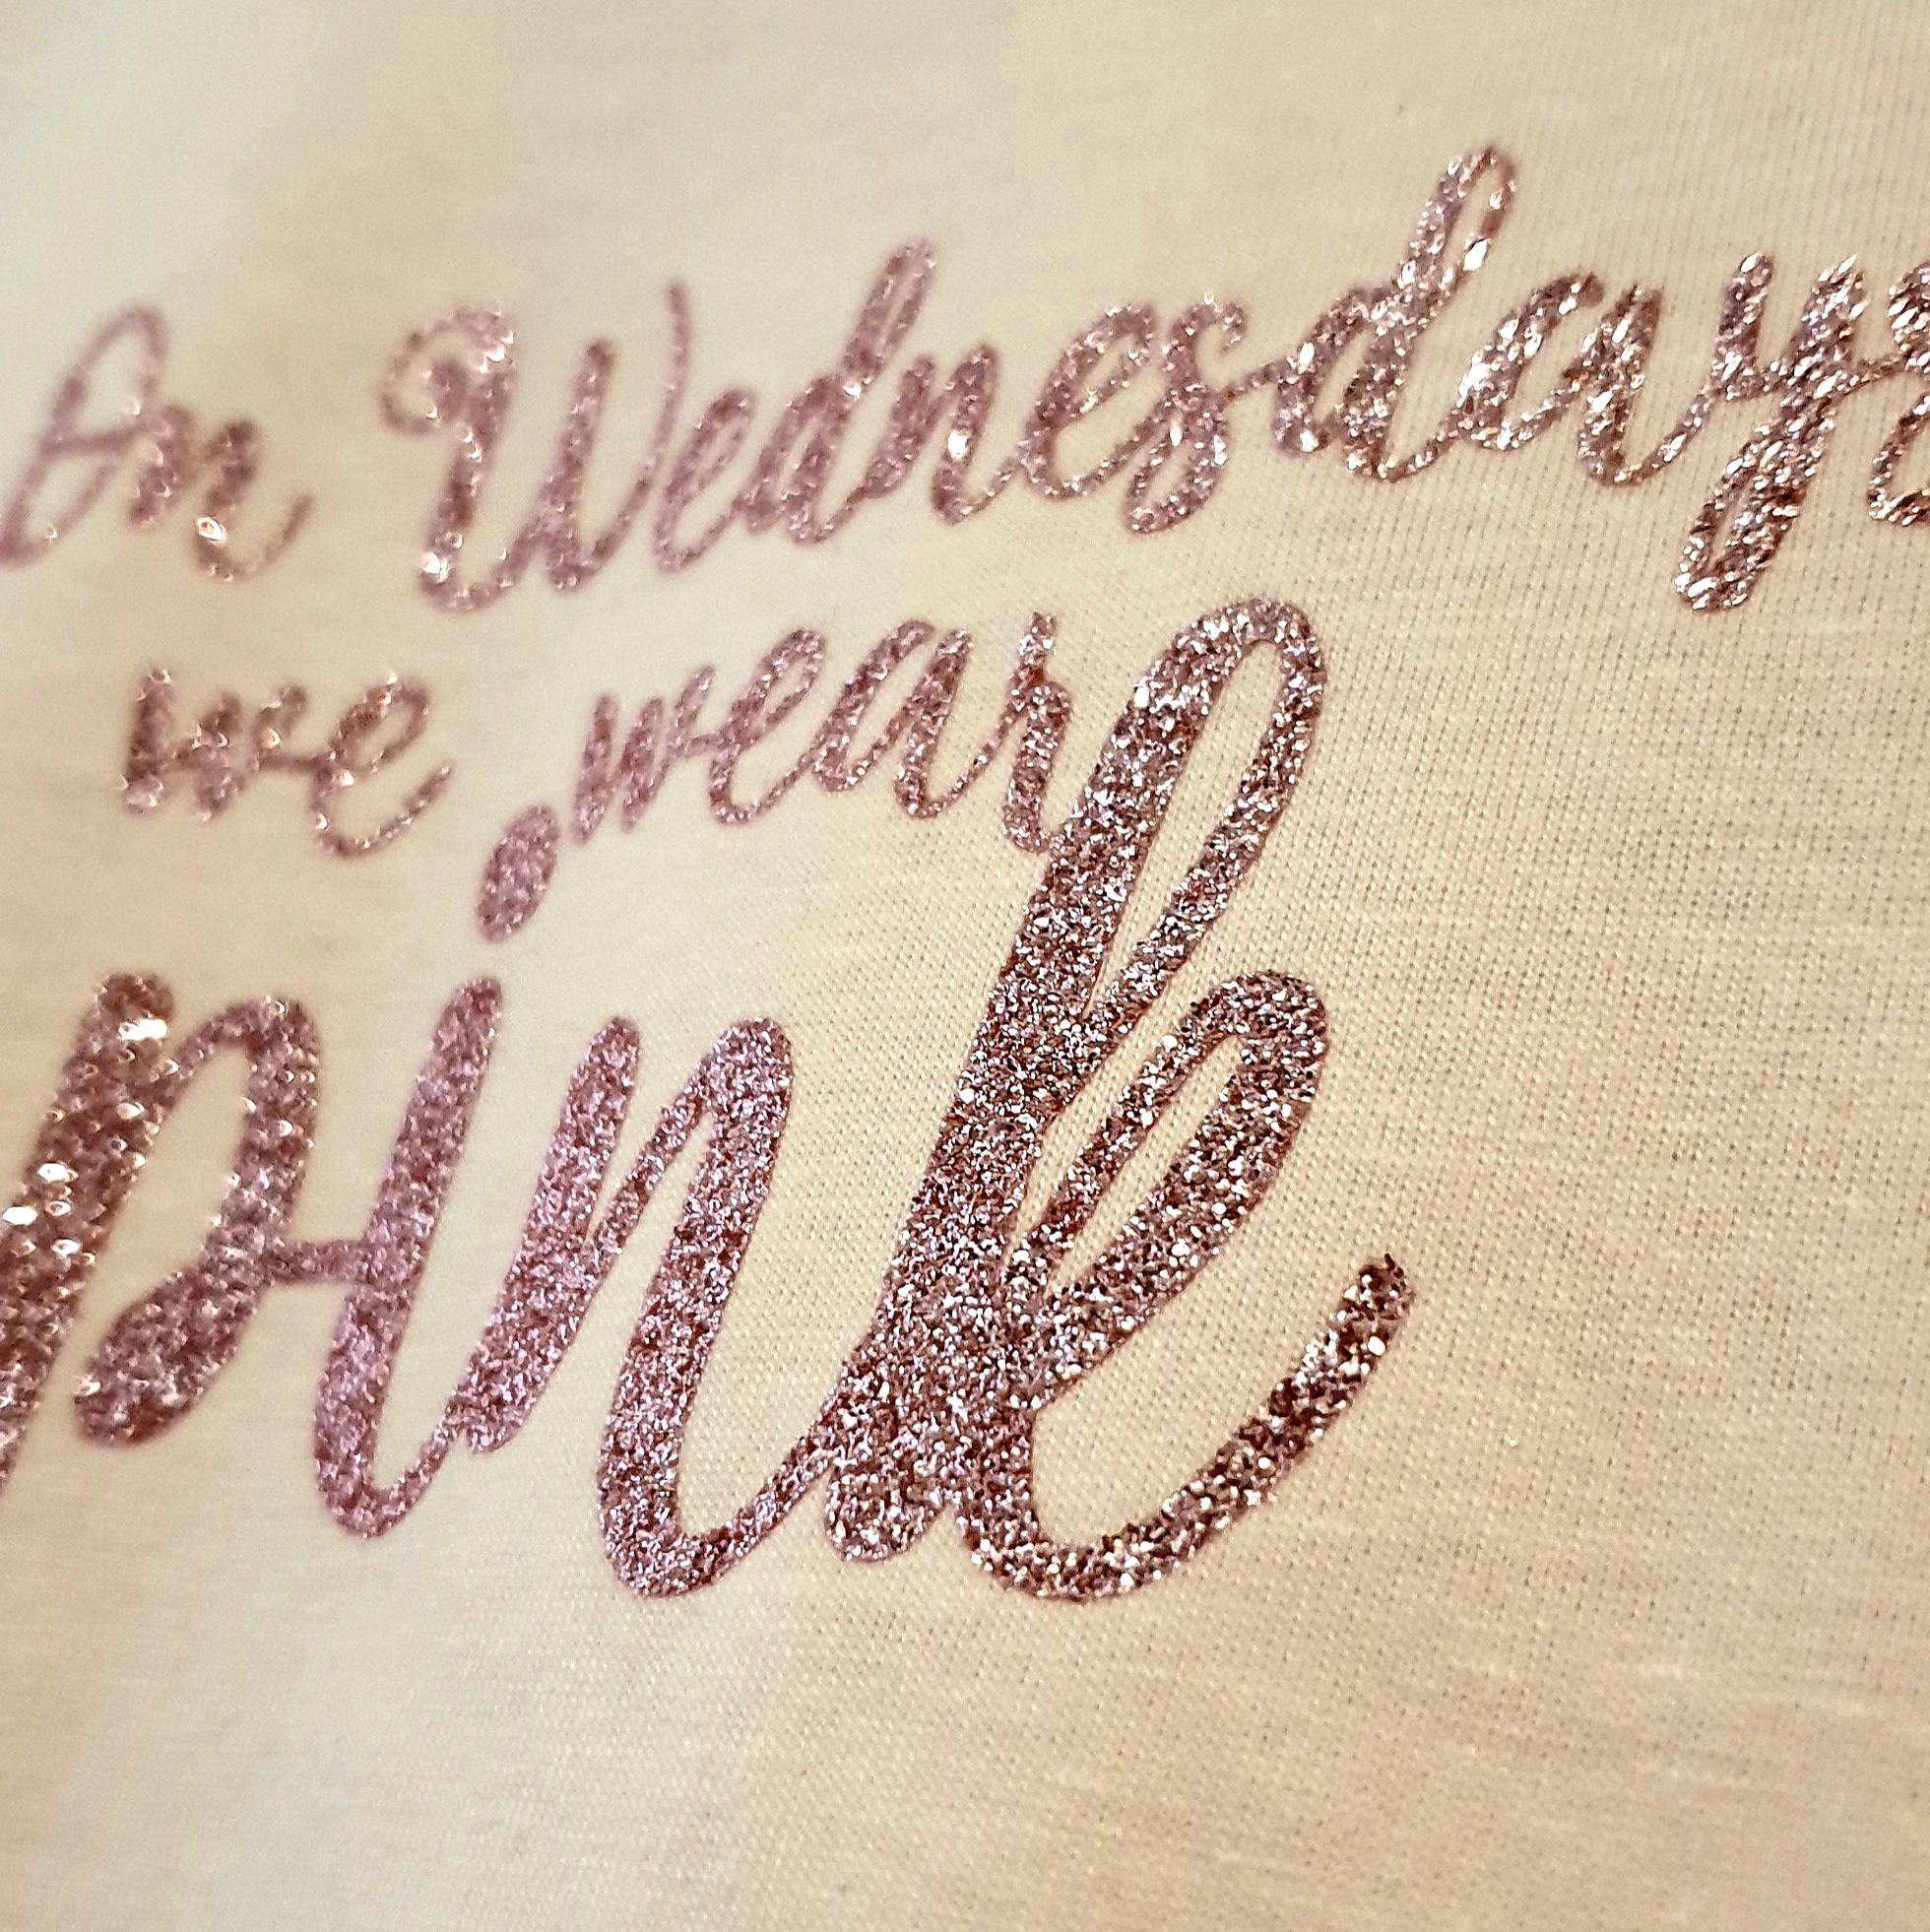 On Wednesdays
we wear
pink